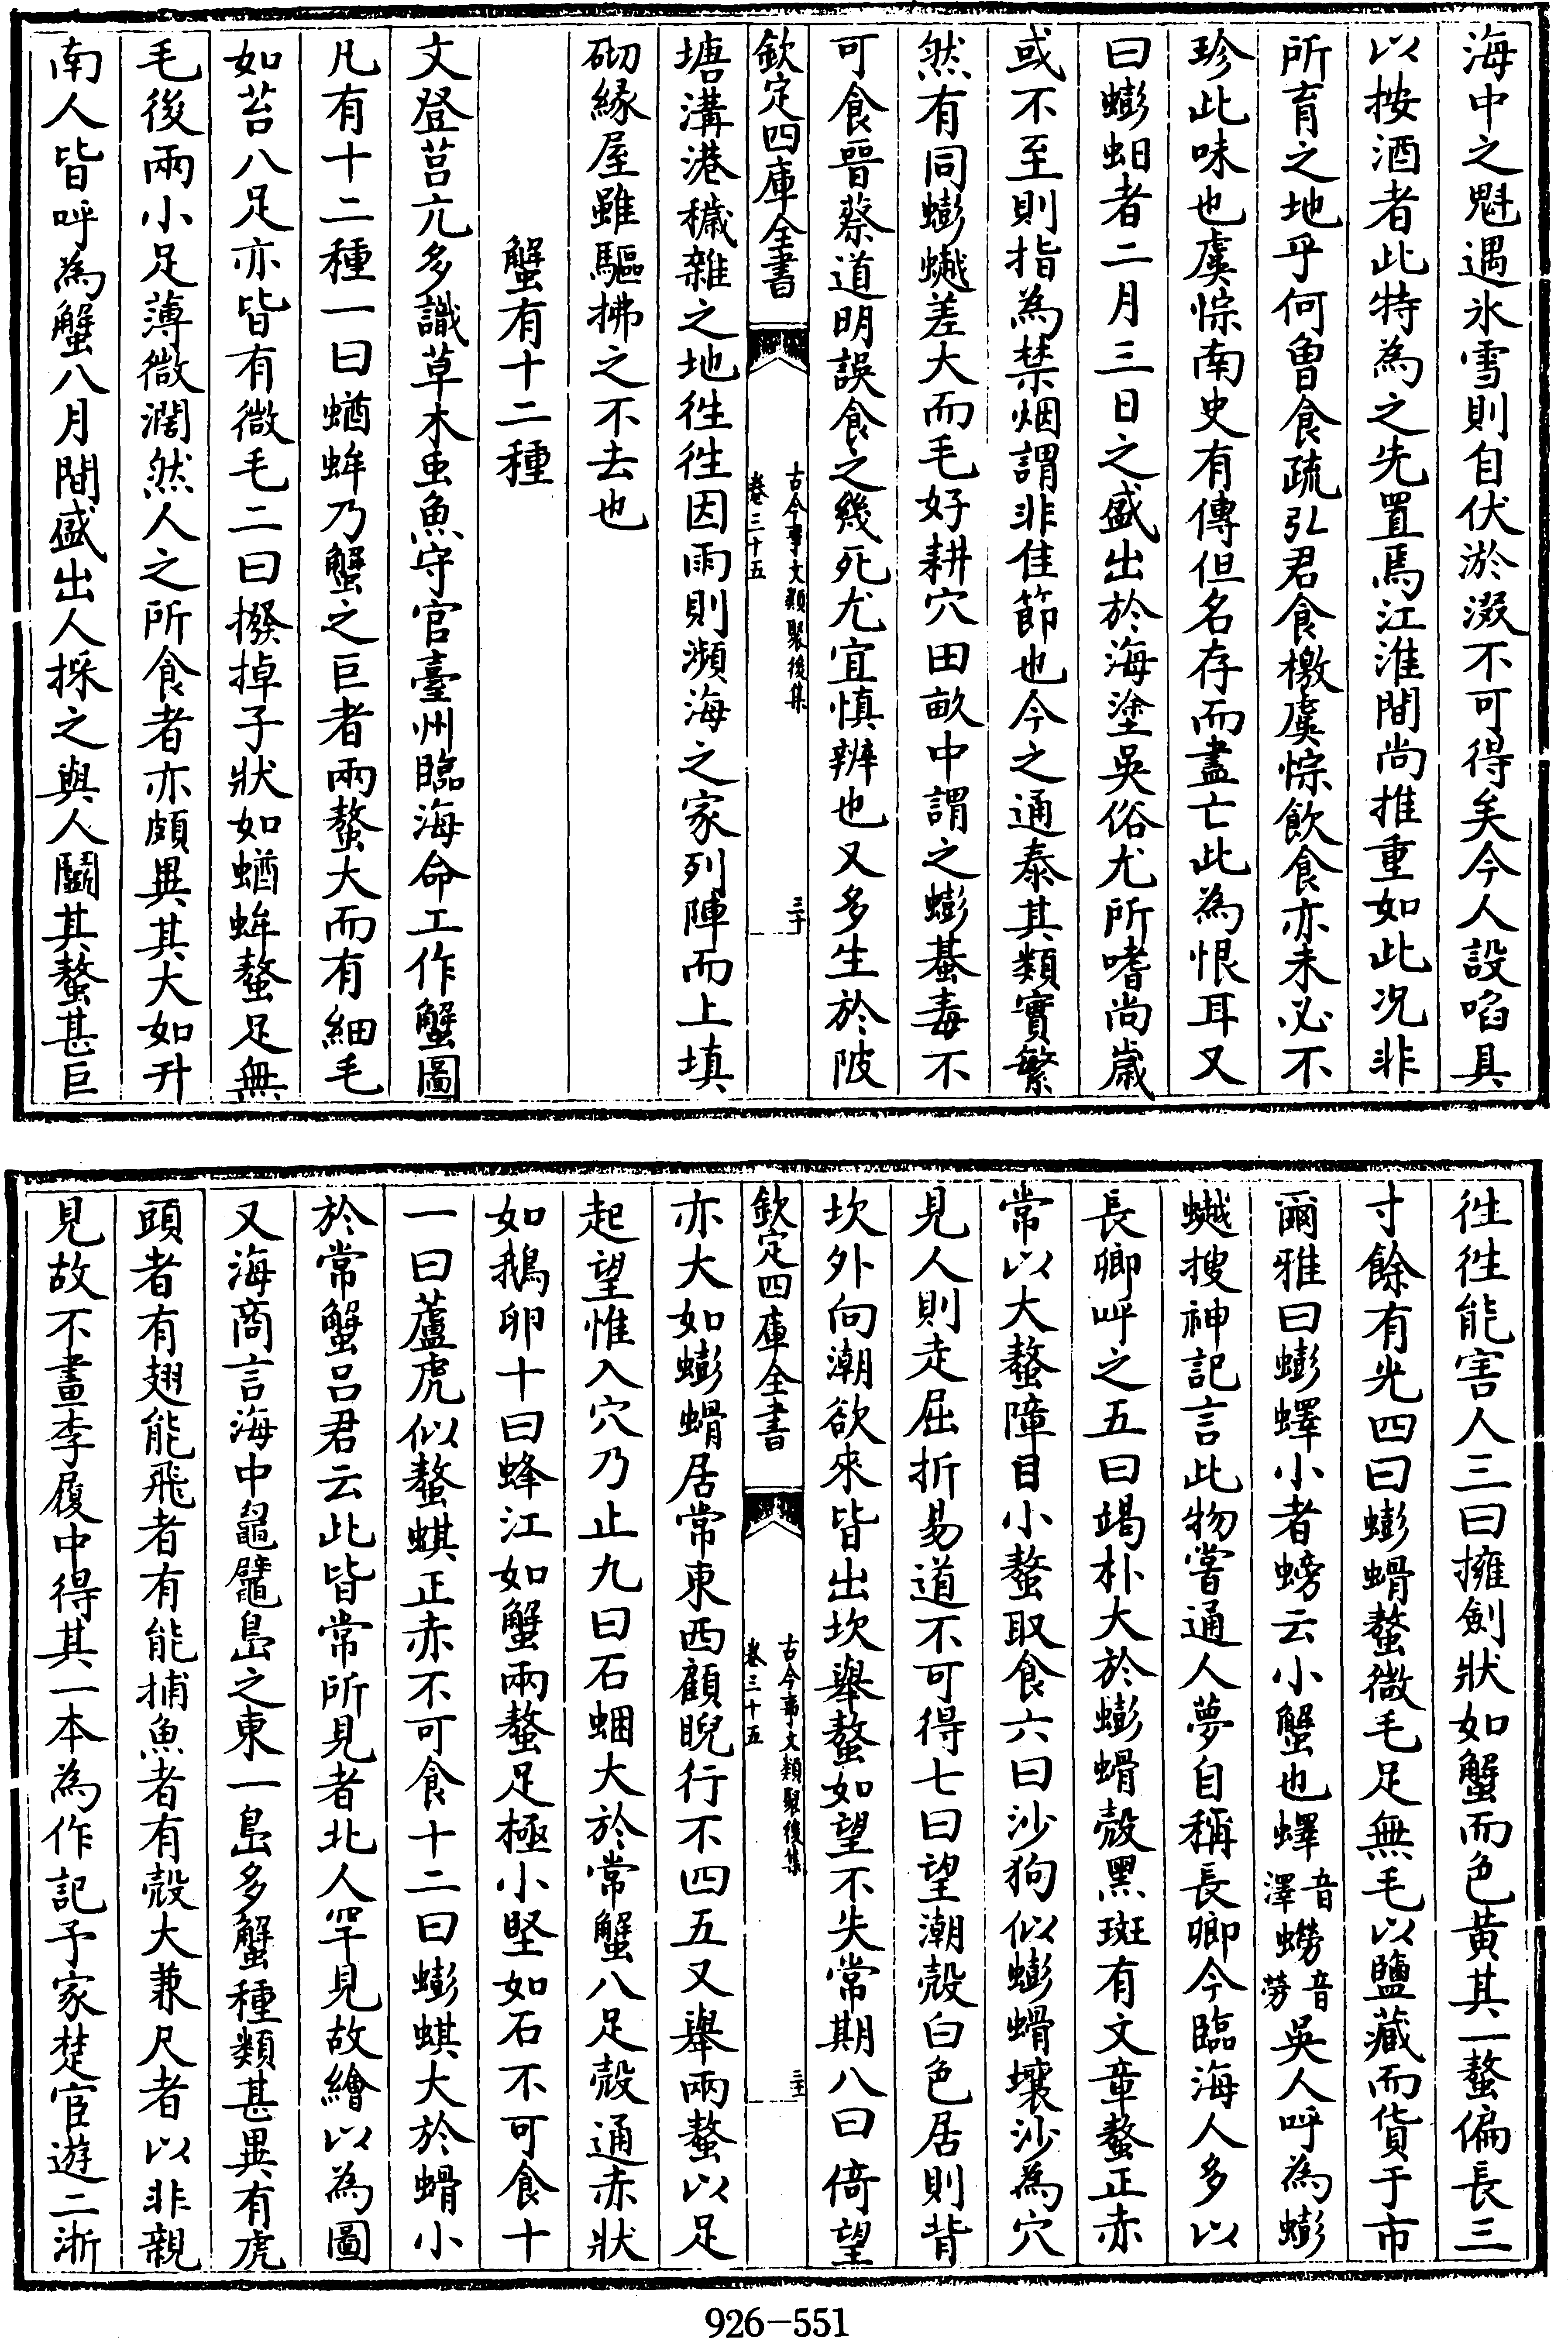 海中之魁遇氷雪則自伏淤涊不可得矣今人設啗具
以按酒者此特為之先置焉江淮間尚推重如此况非
所育之地乎何魯食疏弘君食檄虞悰飲食亦未必不
珍此味也虞悰南史有傳但名存而盡亡此為恨耳又
曰蟛蚎者二月三日之盛出於海塗吳俗尤所嗜尚歲
或不至則指為禁烟謂非佳節也今之通泰其類實繁
然有同蟛䗋差大而毛好耕穴田畝中謂之蟛蜞毒不
可食晉蔡道明誤食之幾死尤宜慎辨也又多生於陂
欽定四庫全書
古今事文類聚後集
卷三十五
三十
塘溝港穢雜之地徃徃因雨則瀕海之家列陣而上填
砌緣屋雖驅拂之不去也
蟹有十二種
文登莒亢多識草木虫魚守官臺州臨海命工作蟹圖
凡有十二種一曰蝤蛑乃蟹之巨者兩螯大而有細毛
如苔八足亦皆有微毛二曰撥掉子狀如蝤蛑螯足無
毛後兩小足薄微濶然人之所食者亦頗異其大如升
南人皆呼為蟹八月間盛出人採之與人鬭其螯甚巨
徃徃能害人三曰擁劍狀如蟹而色黃其一螯偏長三
寸餘有光四曰蟛螖螯微毛足無毛以鹽藏而貨于市
爾雅曰蟛蠌小者蟧云小蟹也蠌音澤蟧音勞吳人呼為蟛
䗋搜神記言此物嘗通人夢自稱長卿今臨海人多以
長卿呼之五曰竭朴大於蟛螖殼黑斑有文章螯正赤
常以大螯障目小螯取食六曰沙狗似蟛螖壤沙為穴
見人則走屈折易道不可得七曰望潮殼白色居則背
坎外向潮欲來皆出坎舉螯如望不失常期八曰倚望
欽定四庫全書
古今事文類聚後集
卷三十五
三十一
亦大如蟛螖居常東西顧睨行不四五又舉兩螯以足
起望惟入穴乃止九曰石蜠大於常蟹八足殼通赤狀
如鵝卵十曰蜂江如蟹兩螯足極小堅如石不可食十
一曰蘆虎似螯蜞正赤不可食十二曰蟛蜞大於螖小
於常蟹呂君云此皆常所見者北人罕見故繪以為圖
又海商言海中鼊鼊島之東一島多蟹種類甚異有虎
頭者有翅能飛者有能捕魚者有殼大兼尺者以非親
見故不畫李履中得其一本為作記予家楚宦遊二浙
926-551